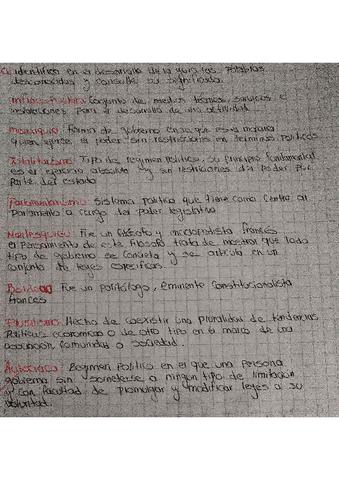 identifica en el desarrollo de la guia las palabras
desconocidas y consulte su significado.
Infraestructura: Conjunto de medios tecnicos, servicios e
instalaciones para el desarrollo de una actividad
monarquia: forma de gobierno en la que es la monarca
quien ejerce el poder sin restricciones en terminos politicos
Absolutismo: Tipo de regimen politico, su principio fundamental
es el ejercicio absoluto y sin restricciones del poder por
parte del estado
Parlamentarismo: sistema politico que tiene como centro al
Parlamento a cargo del poder legislativo
Montesquieu: Fue un filosofo y politista francés
el pensamiento de este filosofo trata de mostrar que cada
tipo de gobierno se concreta y se articula en un
conjunto de leyes especificas.
Fue un politólogo, eminente constitucionalista
frances
Pluralismo: Hecho de coexistir una pluralidad de tendencias
Politicas economicas o de otro tipo en el marco de una
asociación comunidad o sociedad.
Autocracia: Regimen Politico en el que una persona
gobierna sin someterse a ningun tipo de limitación
y con facultad de promulgar y modificar leyes a su
voluntad.